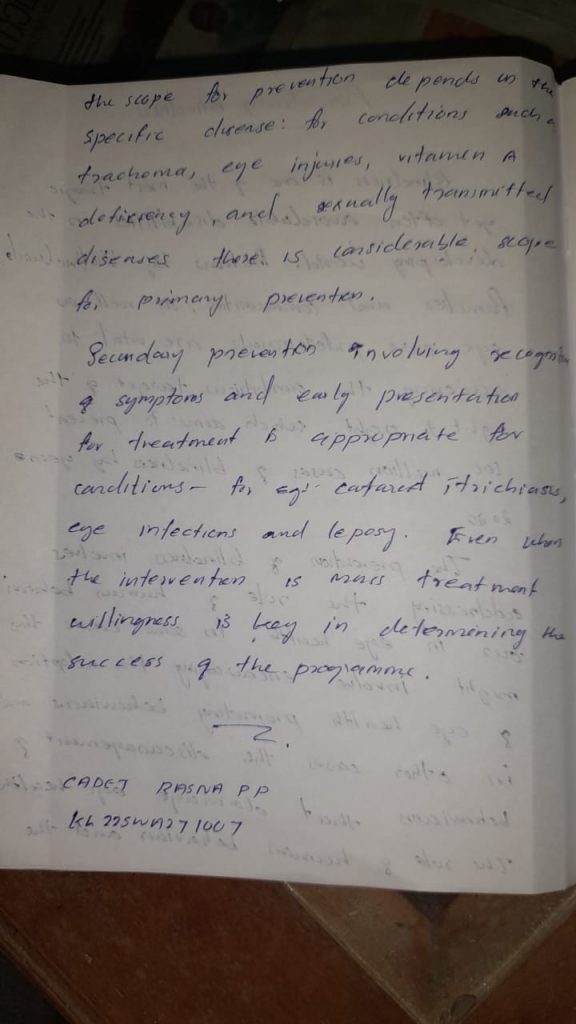 the scope for prevention depends on the
specific disease: for conditions such a
trachoma, eye injuries, vitamen A
deficiency, and sexually transmitted
diseases there is considerable scope
for primary prevention.
Secondary prevention involving recognition
of symptoms and early presentation
for treatment is appropriate for
conditions - for eg:- cataract, trichiasis,
eye infections and leposy. Even when
the intervention is mass treatment
willingness is key in determening the
success of the programme.
CADET RASNA P P
KL22SWA271007